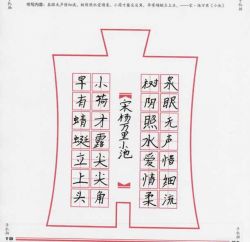 书写内容：泉眼无声惜细流，树阴照水爱晴柔。小荷才露尖尖角，早有蜻蜓立上头。——宋·杨万里《小池》
泉眼无声惜细流
树阴照水爱情柔
宋杨万里小池
小荷才露尖尖角
早有蜻蜓立上头